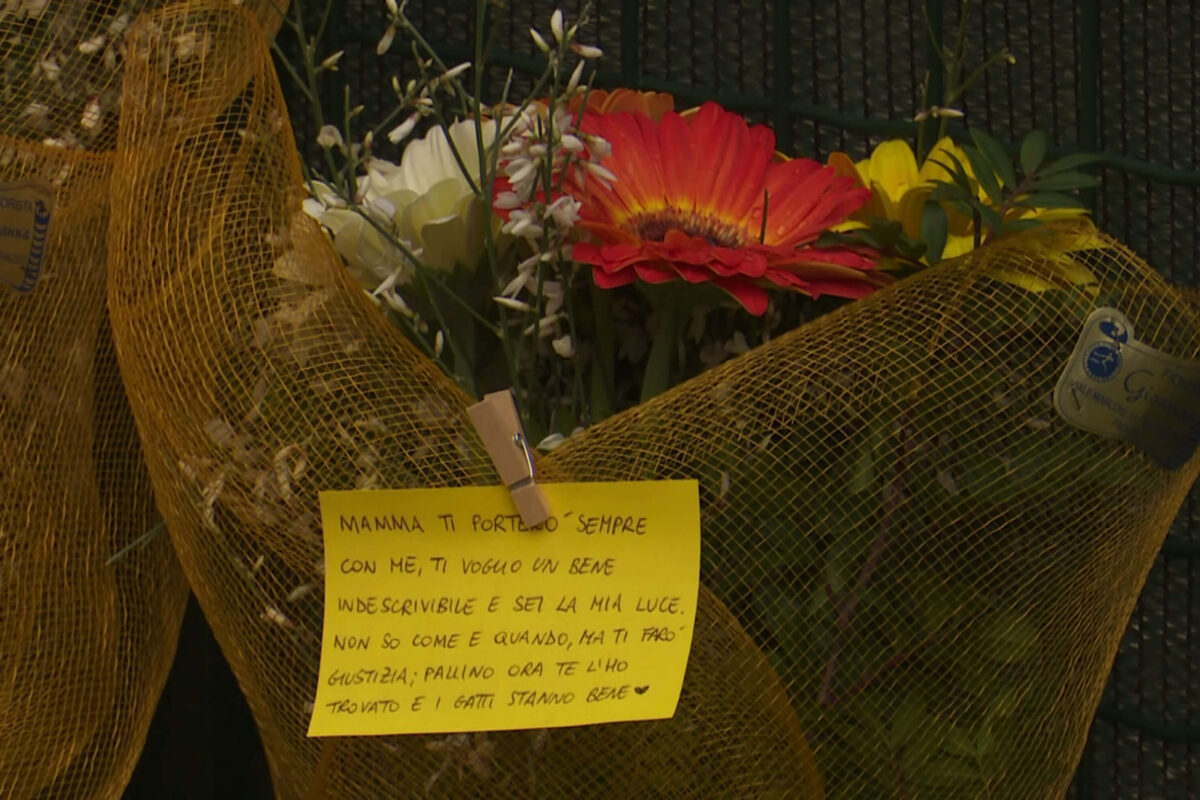 MAMMA TI PORTERO´ SEMPRE
CON ME, TI VOGLIO UN BENE
INDESCRIVIBILE E SEI LA MIA LUCE.
NON SO COME E QUANDO, MA TI FARO´
GIUSTIZIA; PALLINO ORA TE L'HO
TROVATO E I GATTI STANNO BENE ♥
VIALE MARCONI